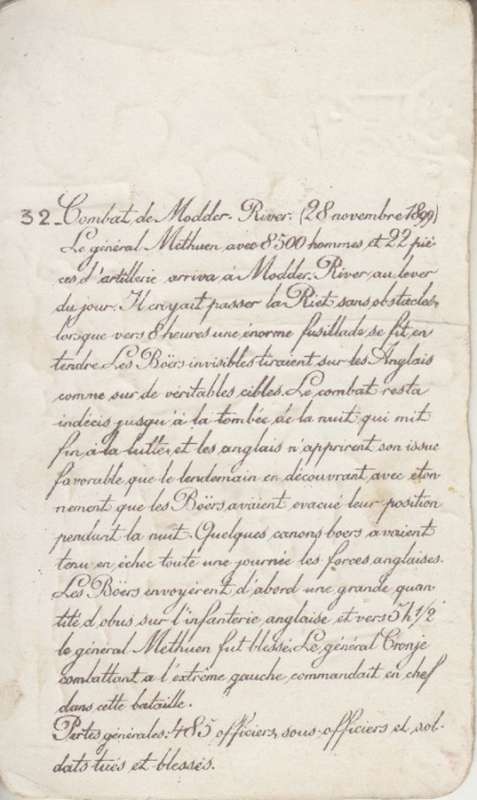 32_Combat de Modder-River. (28 novembre 1899)
Le général Méthuen avec 8500 hommes et 22 piè-
ces d'artillerie arriva à Modder-River au lever
du jour. Il croyait passer la Riet sans obstacles,
lorsque vers 8 heures une énorme fusillade se fit en
tendre. Les Böërs invisibles tiraient sur les Anglais
comme sur de véritables cibles. Le combat resta
indécis jusqu'à la tombée de la nuit qui mit
fin à la lutte, et les anglais n'apprirent son issue
favorable que le lendemain en découvrant avec éton
nement que les Böërs avaient evacué leur position
pendant la nuit. Quelques canons boers avaient
tenu en échec toute une journée les forces anglaises.
Les Böërs envoyèrent d'abord une grande quan
tité d'obus sur l'infanterie anglaise et vers 5h 1/2
le général Méthuen fut blessé. Le général Cronje
combattant a l'extrême gauche, commandait en chef
dans cette bataille.
Pertes générales: 485 officiers, sous-officiers et sol-
dats tués et blessés.